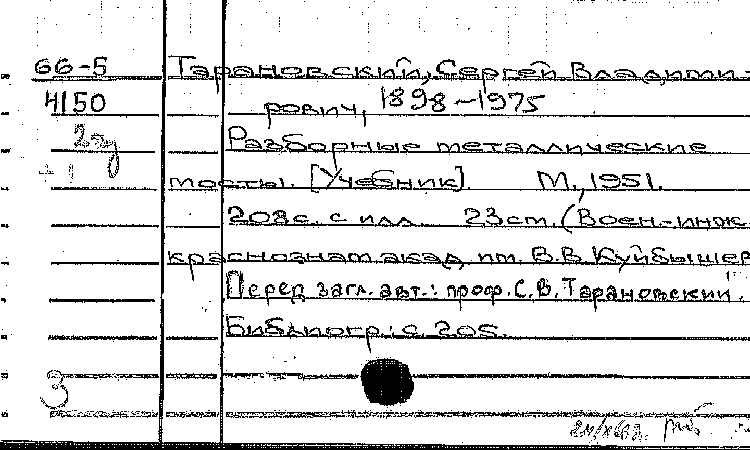 66-5 Тарановский, Сергей Владими-
4150 рович, 1898-1975
2эу Разборные металлические
+1 мосты. [Учебник]. М., 1951.
208 с. с илл. 23 см. (Воен.-инж.
краснознам. акад. им. В.В. Куйбышев
Перед загл. авт.: проф. С.В. Тарановский.
Библиогр.: с 205.
3